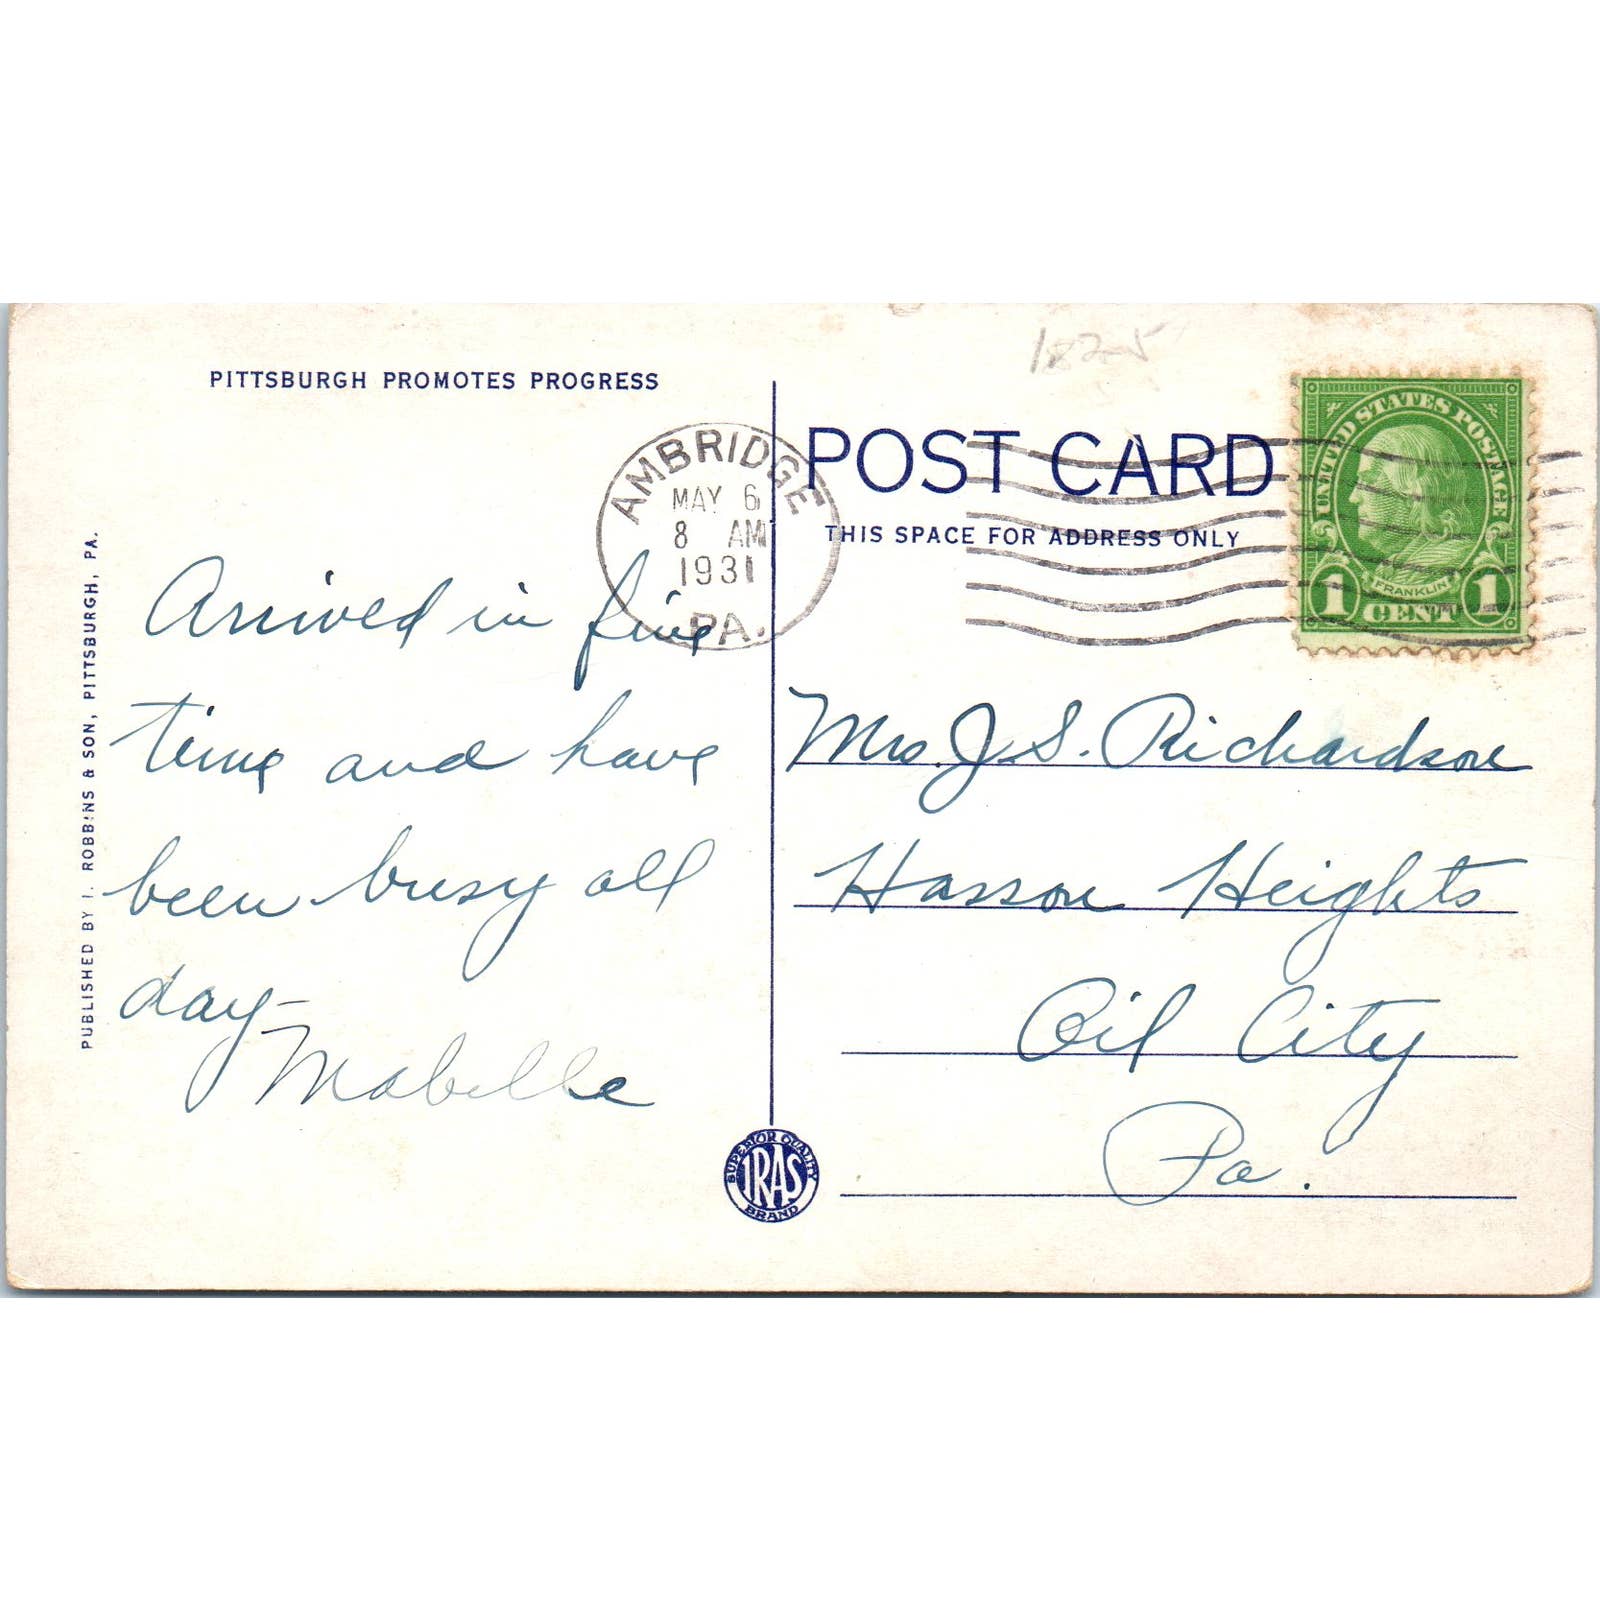 PITTSBURGH PROMOTES PROGRESS
PUBLISHED BY I. ROBBINS & SON, PITTSBURGH, PA.
AMBRIDGE
MAY 6
8 AM
1931
PA.
Arrived in fine
time and have
been busy all
day-
Mabelle
SUPERIOR QUALITY
IRAS
BRAND
1825
POST CARD
THIS SPACE FOR ADDRESS ONLY
UNITED STATES POSTAGE
FRANKLIN
1 CENT 1
Mrs. J. S. Richardson
Hasson Heights
Oil City
Pa.